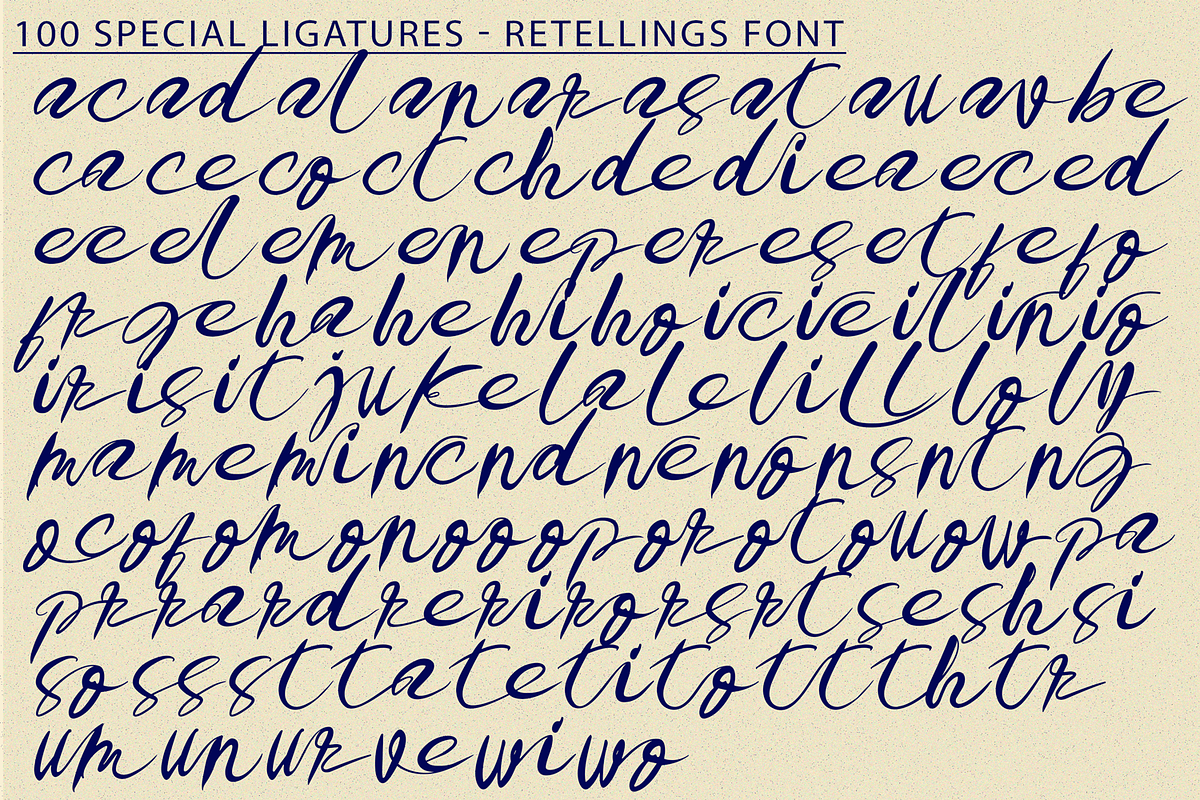 100 SPECIAL LIGATURES - RETELLINGS FONT
acadalanarasatauavbe
cacecoctchdedieaeced
eeelemeneperesetfefo
frgehahehihoicieilinio
irisitjukelalelillloly
mamemincndnenonsntng
ocofomonoooporotouowpa
prrrardrerirorsrtseshsi
sosssttatetitotttthtr
umunurvewiwo